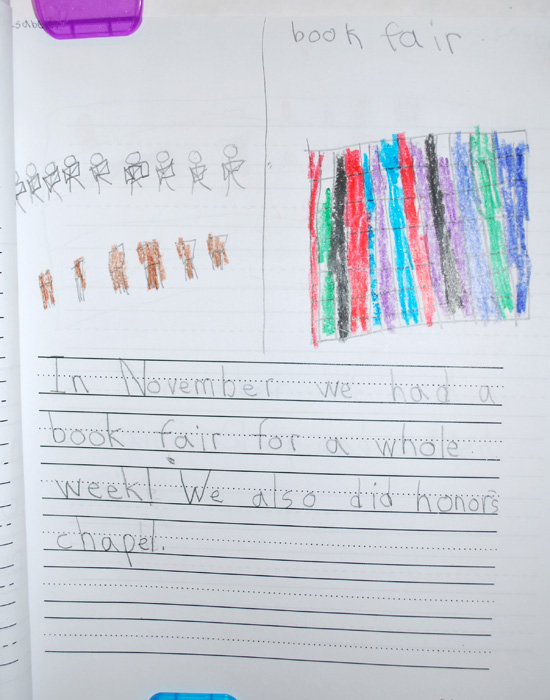 book fair
In November we had a
book fair for a whole
week! We also did honors
chapel.